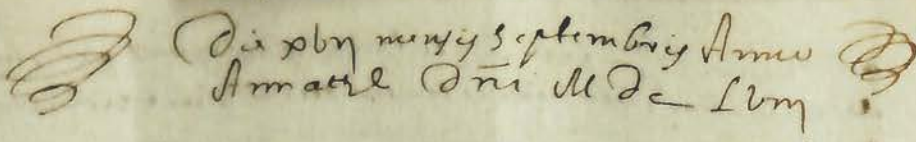 Die xvij mensis Septembris Anno
A natle Dñi M Dc Lviij